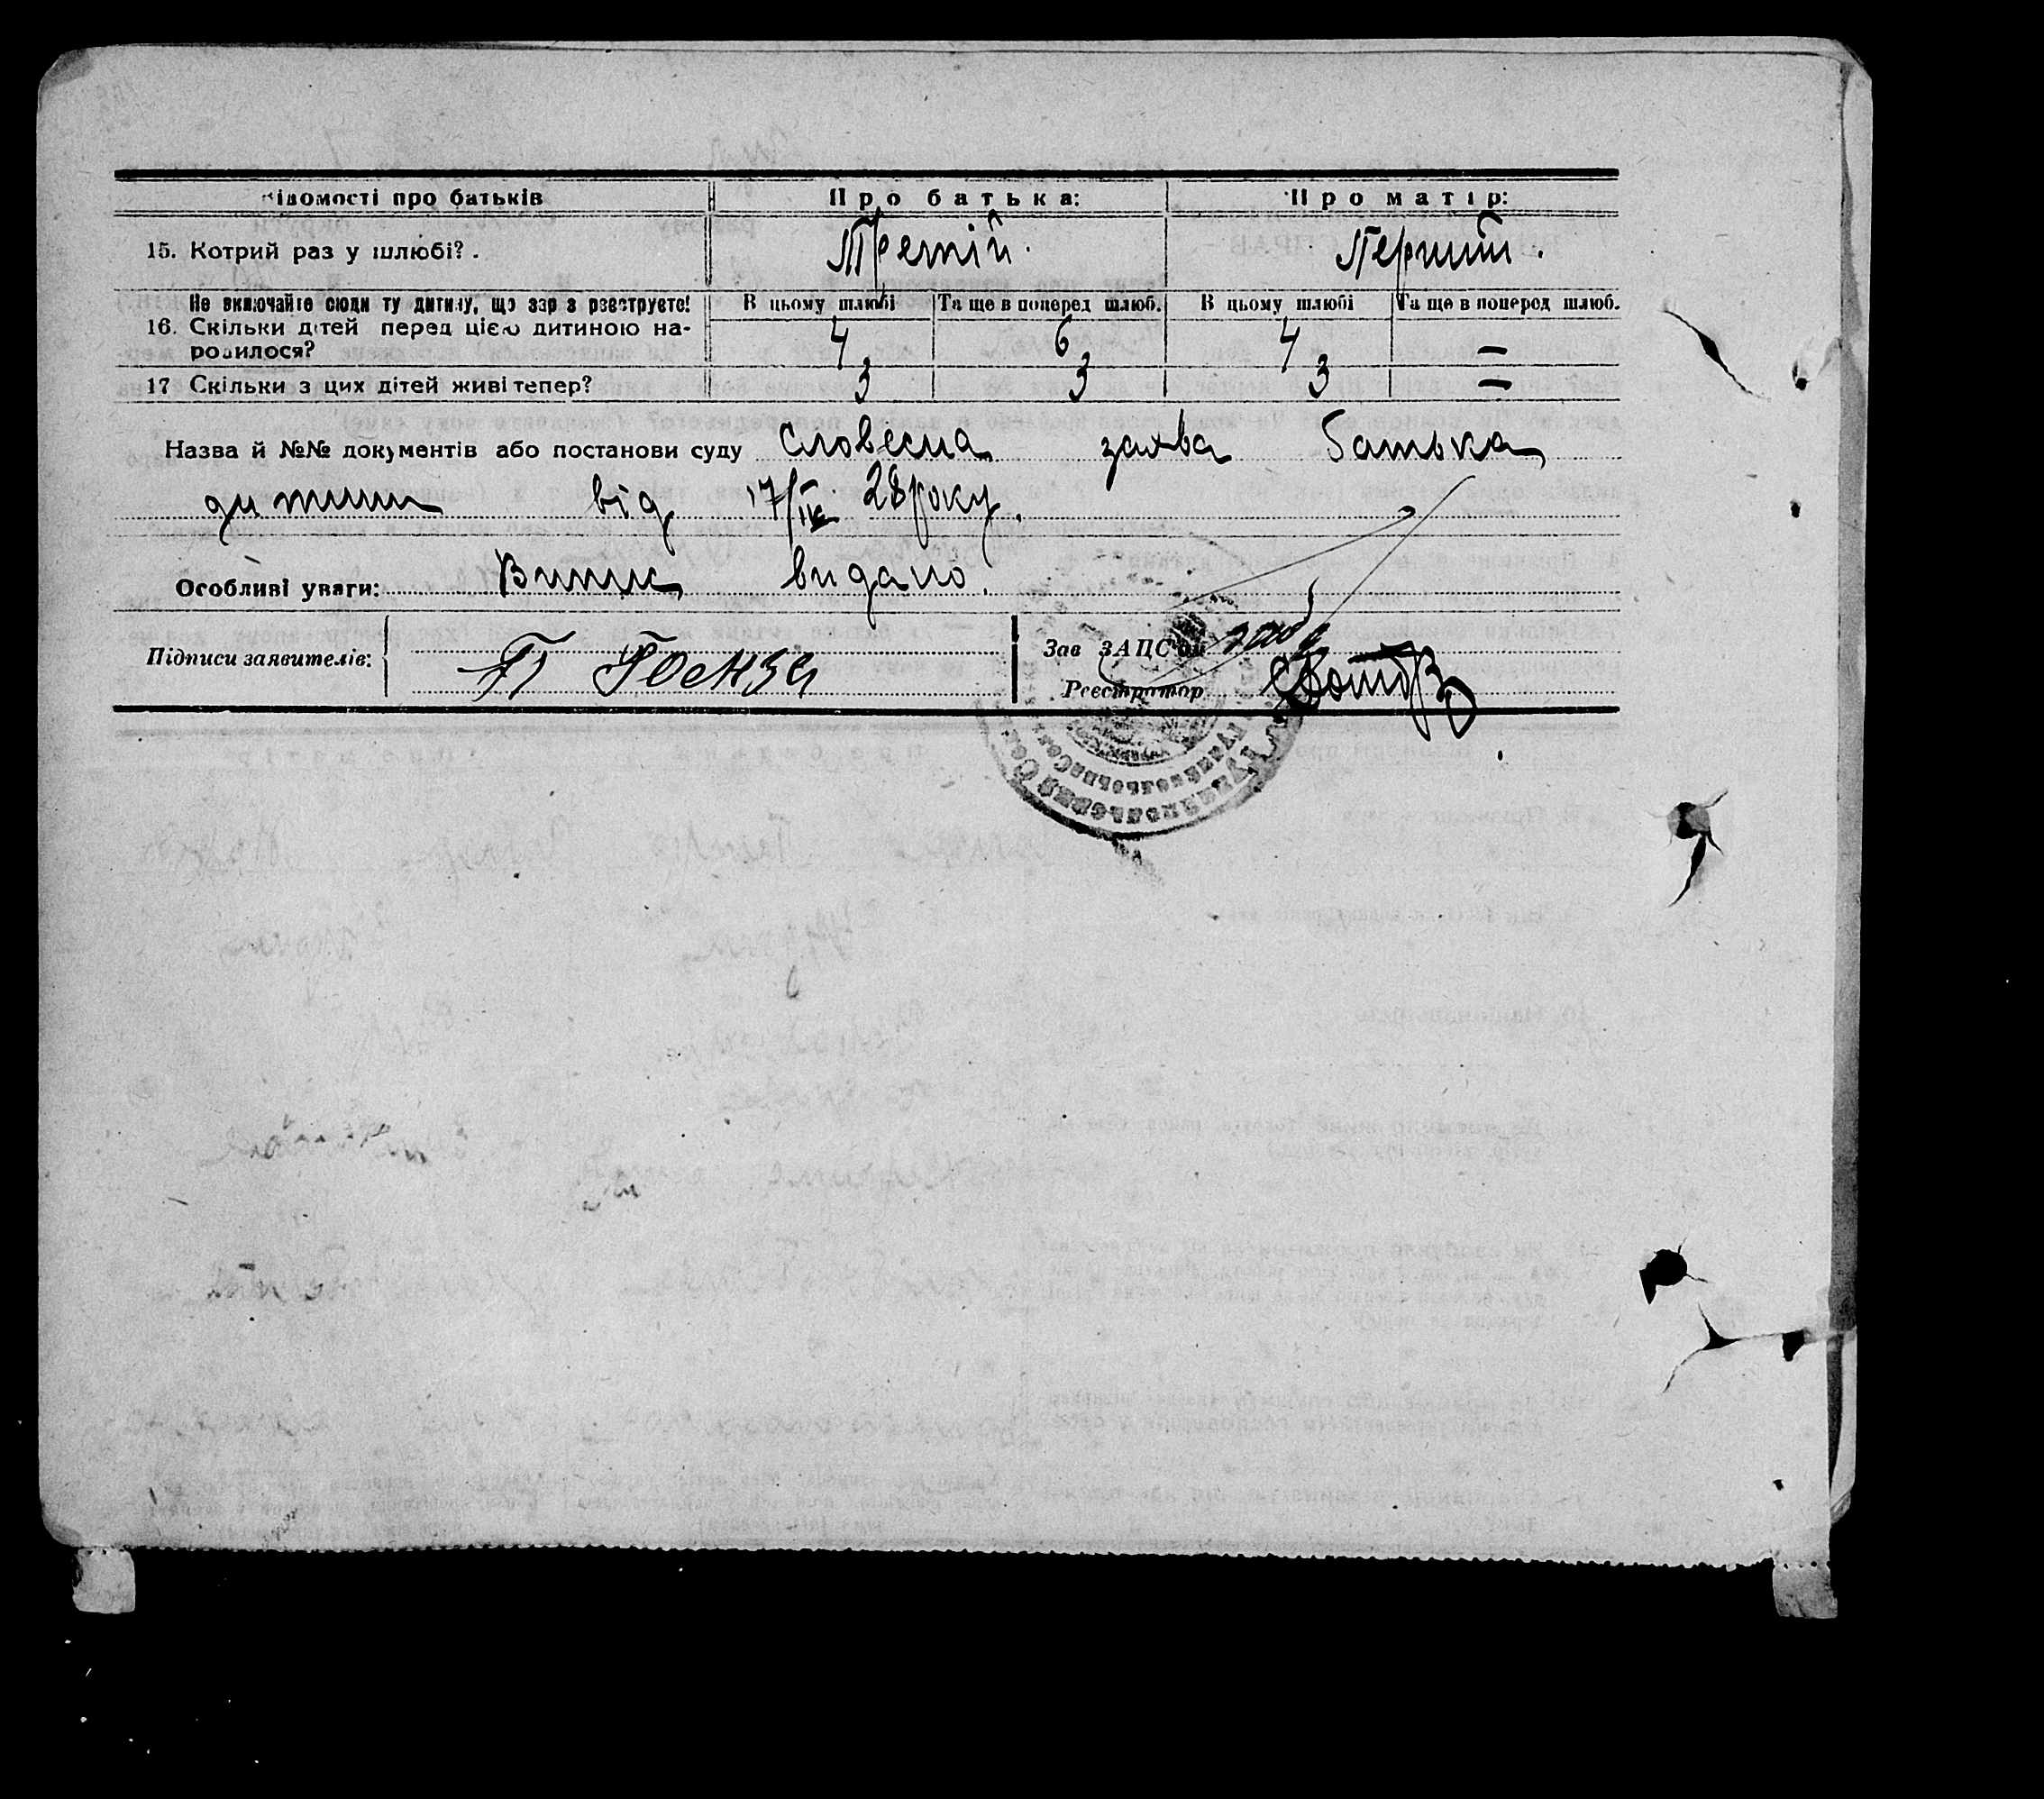 Відомості про батьків Про батька: Про матір:
15. Котрий раз у шлюбі?. Третій. Перший.
Не включайте сюди ту дитину, що зараз реєструєте! В цьому шлюбі Та ще в поперед шлюб. В цьому шлюбі Та ще в поперед шлюб.
16. Скільки дітей перед цією дитиною на-
родилося? 4 6 4 —
17 Скільки з цих дітей живі тепер? 3 3 3 —
Назва й №№ документів або постанови суду словесна заява батька
дитини від 17/IX 28 року.
Особливі уваги: Випис видано.
Підписи заявителів: П
Зав ЗАПС'ом
Реєстратор